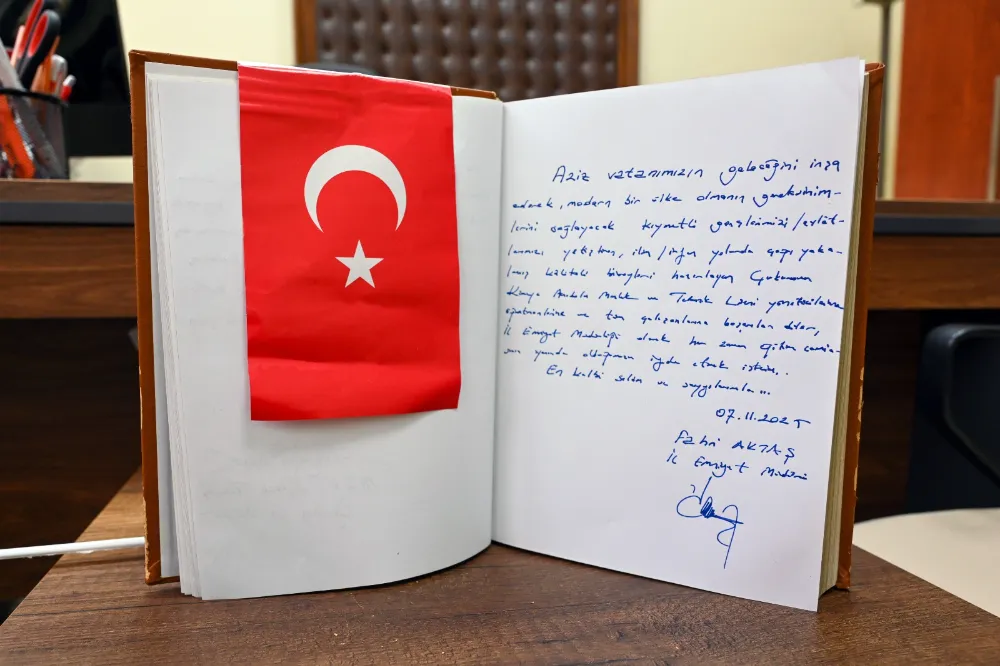 Aziz vatanımızın geleceğini inşa
edecek, modern bir ülke olmanın gereksinim-
lerini sağlayacak kıymetli gençlerimizi/evlat-
larımızı yetiştiren, ilim/irfan yolunda çağı yaka-
lamış kaliteli bireyleri hazırlayan Çukurova
Kimya Anadolu Meslek ve Teknik Lisesi yöneticilerine
öğretmenlerine ve tüm çalışanlarına başarılar diler,
İl Emniyet Müdürlüğü olarak her zaman eğitim camia-
sının yanında olduğumuzu ifade etmek isterim..
En kalbi selam ve saygılarımla...
07.11.2025
Fahri AKTAŞ
İl Emniyet Müdürü